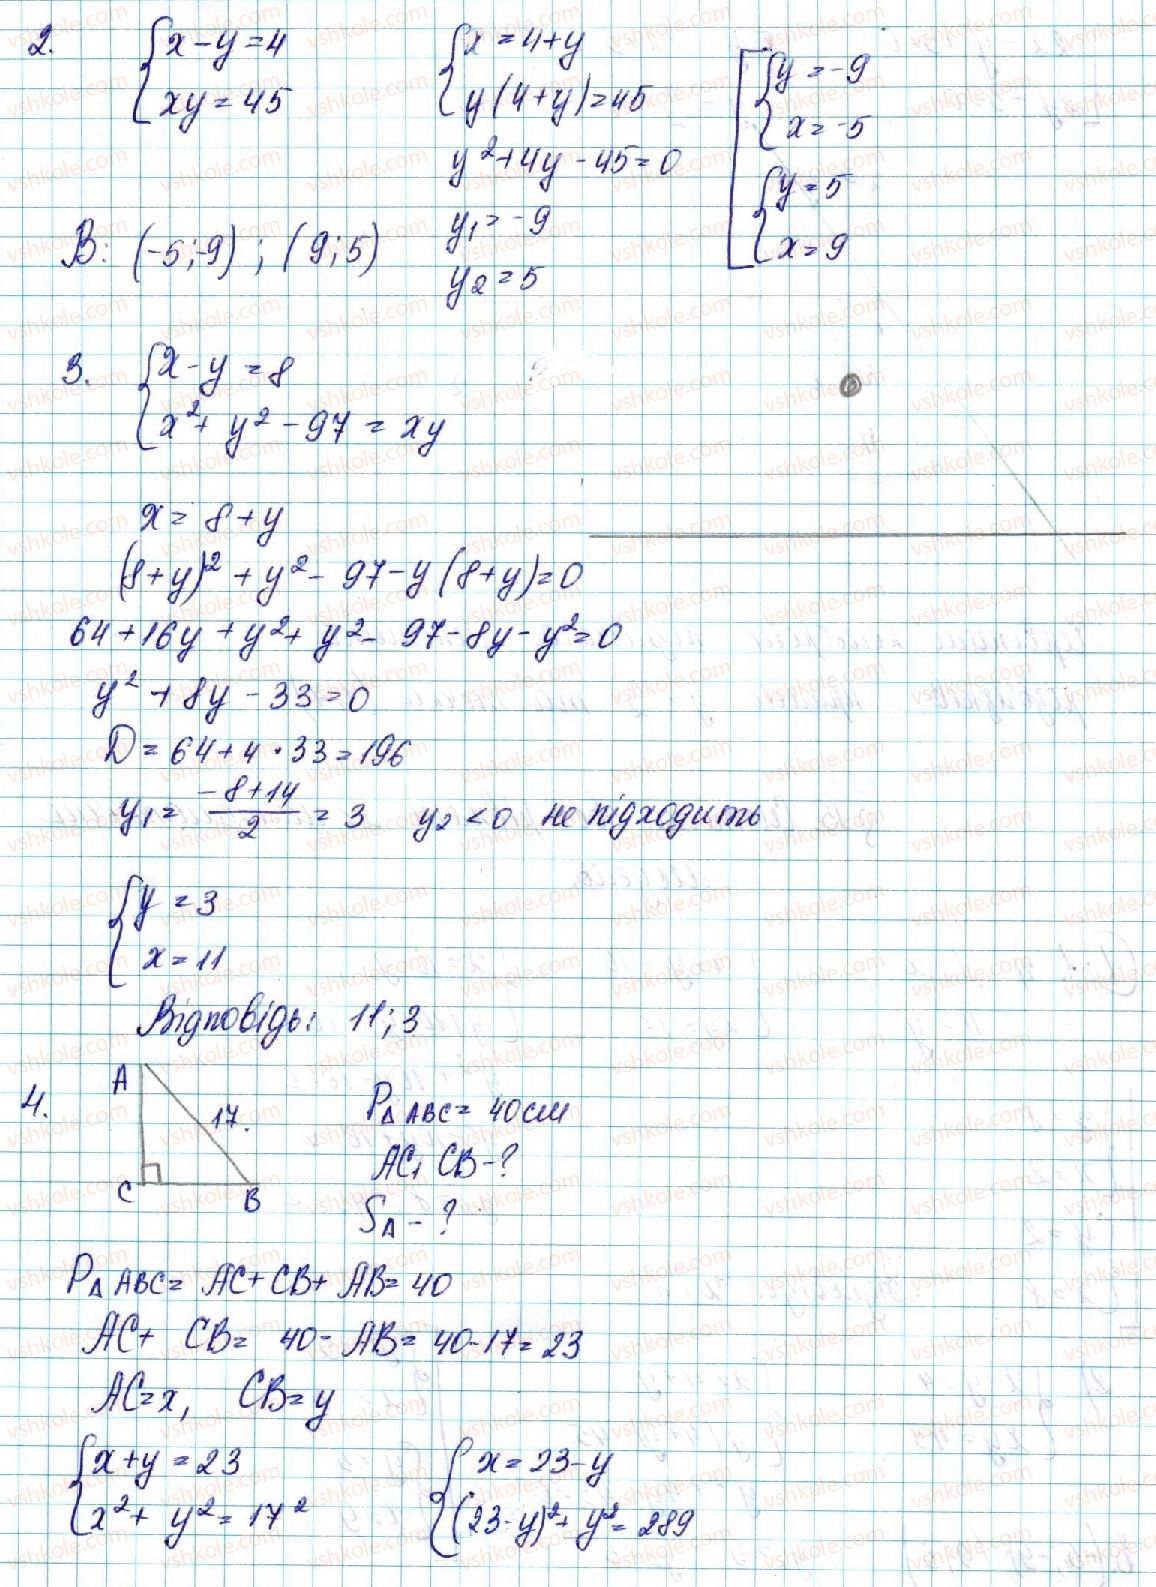 2. { x - y = 4
xy = 45
{ x = 4 + y
y(4 + y) = 45
y² + 4y - 45 = 0
y₁ = -9
y₂ = 5
[ { y = -9
x = -5
{ y = 5
x = 9
В: (-5; -9) ; (9; 5)
3. { x - y = 8
x² + y² - 97 = xy
x = 8 + y
(8 + y)² + y² - 97 - y(8 + y) = 0
64 + 16y + y² + y² - 97 - 8y - y² = 0
y² + 8y - 33 = 0
D = 64 + 4 · 33 = 196
y₁ = (-8 + 14)/2 = 3 y₂ < 0 не підходить
{ y = 3
x = 11
Відповідь: 11; 3
4. A
17.
C B
P△ABC = 40 см
AC, CB - ?
S△ - ?
P△ABC = AC + CB + AB = 40
AC + CB = 40 - AB = 40 - 17 = 23
AC = x, CB = y
{ x + y = 23
x² + y² = 17²
{ x = 23 - y
(23 - y)² + y² = 289
vshkole.com